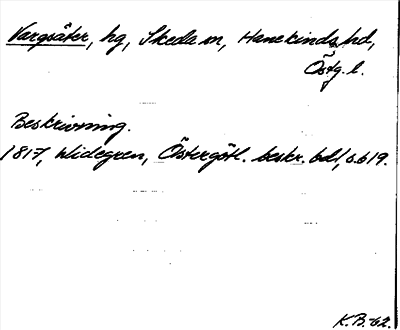 Vargsäter, hg, Skeda sn, Hanekinds hd,
Östg. l.
Beskrivning.
1817, Widegren, Östergötl. beskr. bd I, s. 619.
K.B.-62.